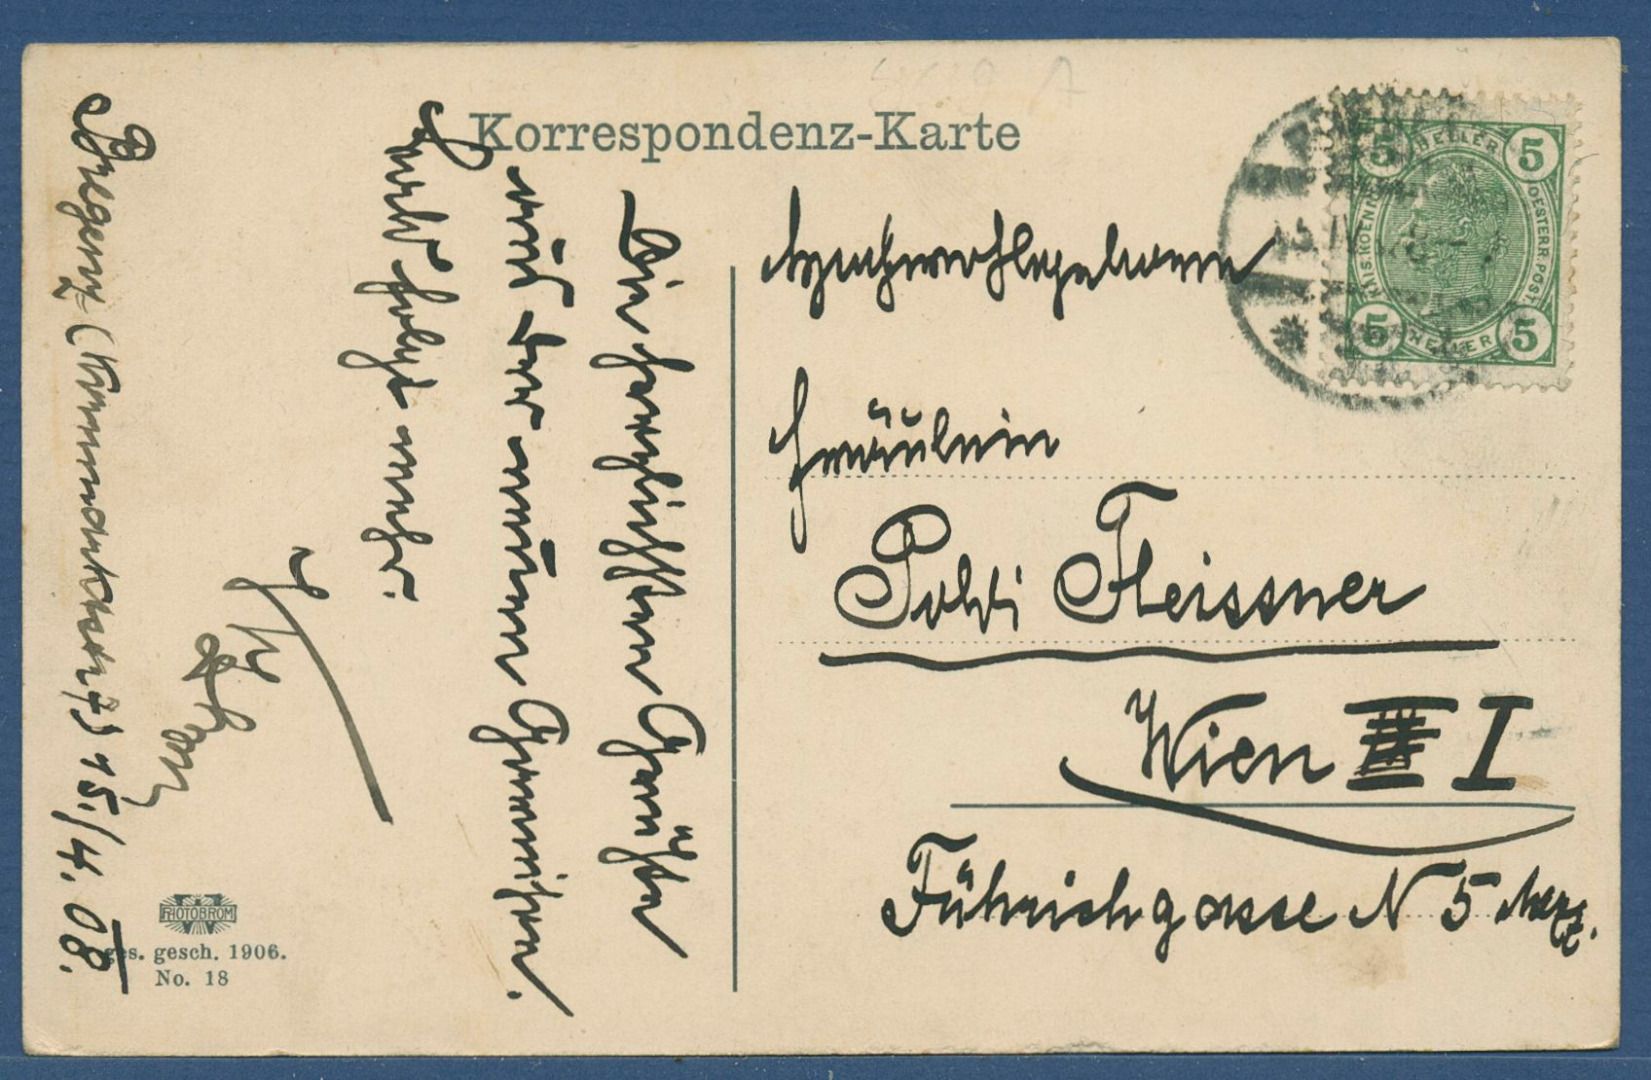 Korrespondenz-Karte
5 HELLER 5
KAIS. KOENIGL. OESTERR. POST.
5 HELLER 5
Hochwohlgeboren
Fräulein
Poldi Fleissner
Wien I
Führichgasse N 5 Mezz.
Die herzlichsten Grüße
aus der neuen
folgt mehr.
Bregenz 15./4. 08.
PHOTOBROM
ges. gesch. 1906.
No. 18